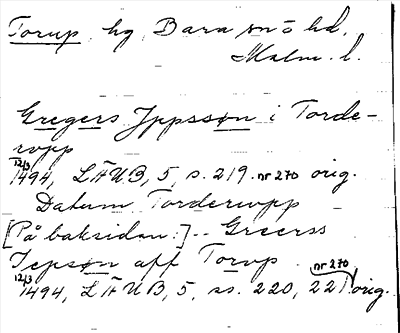 Torup, hg, Bara sn o hd.
Malm. l.
Gregers Jppssøn i Torde-
rvpp
12/3
1494, LÄUB, 5, s. 219. nr 270 orig.
Datum Torderupp
[På baksidan:] -- Greerss
Jepsøn aff Torvp.
12/3 1494, LÄUB, 5, ss. 220, 221. nr 270 orig.